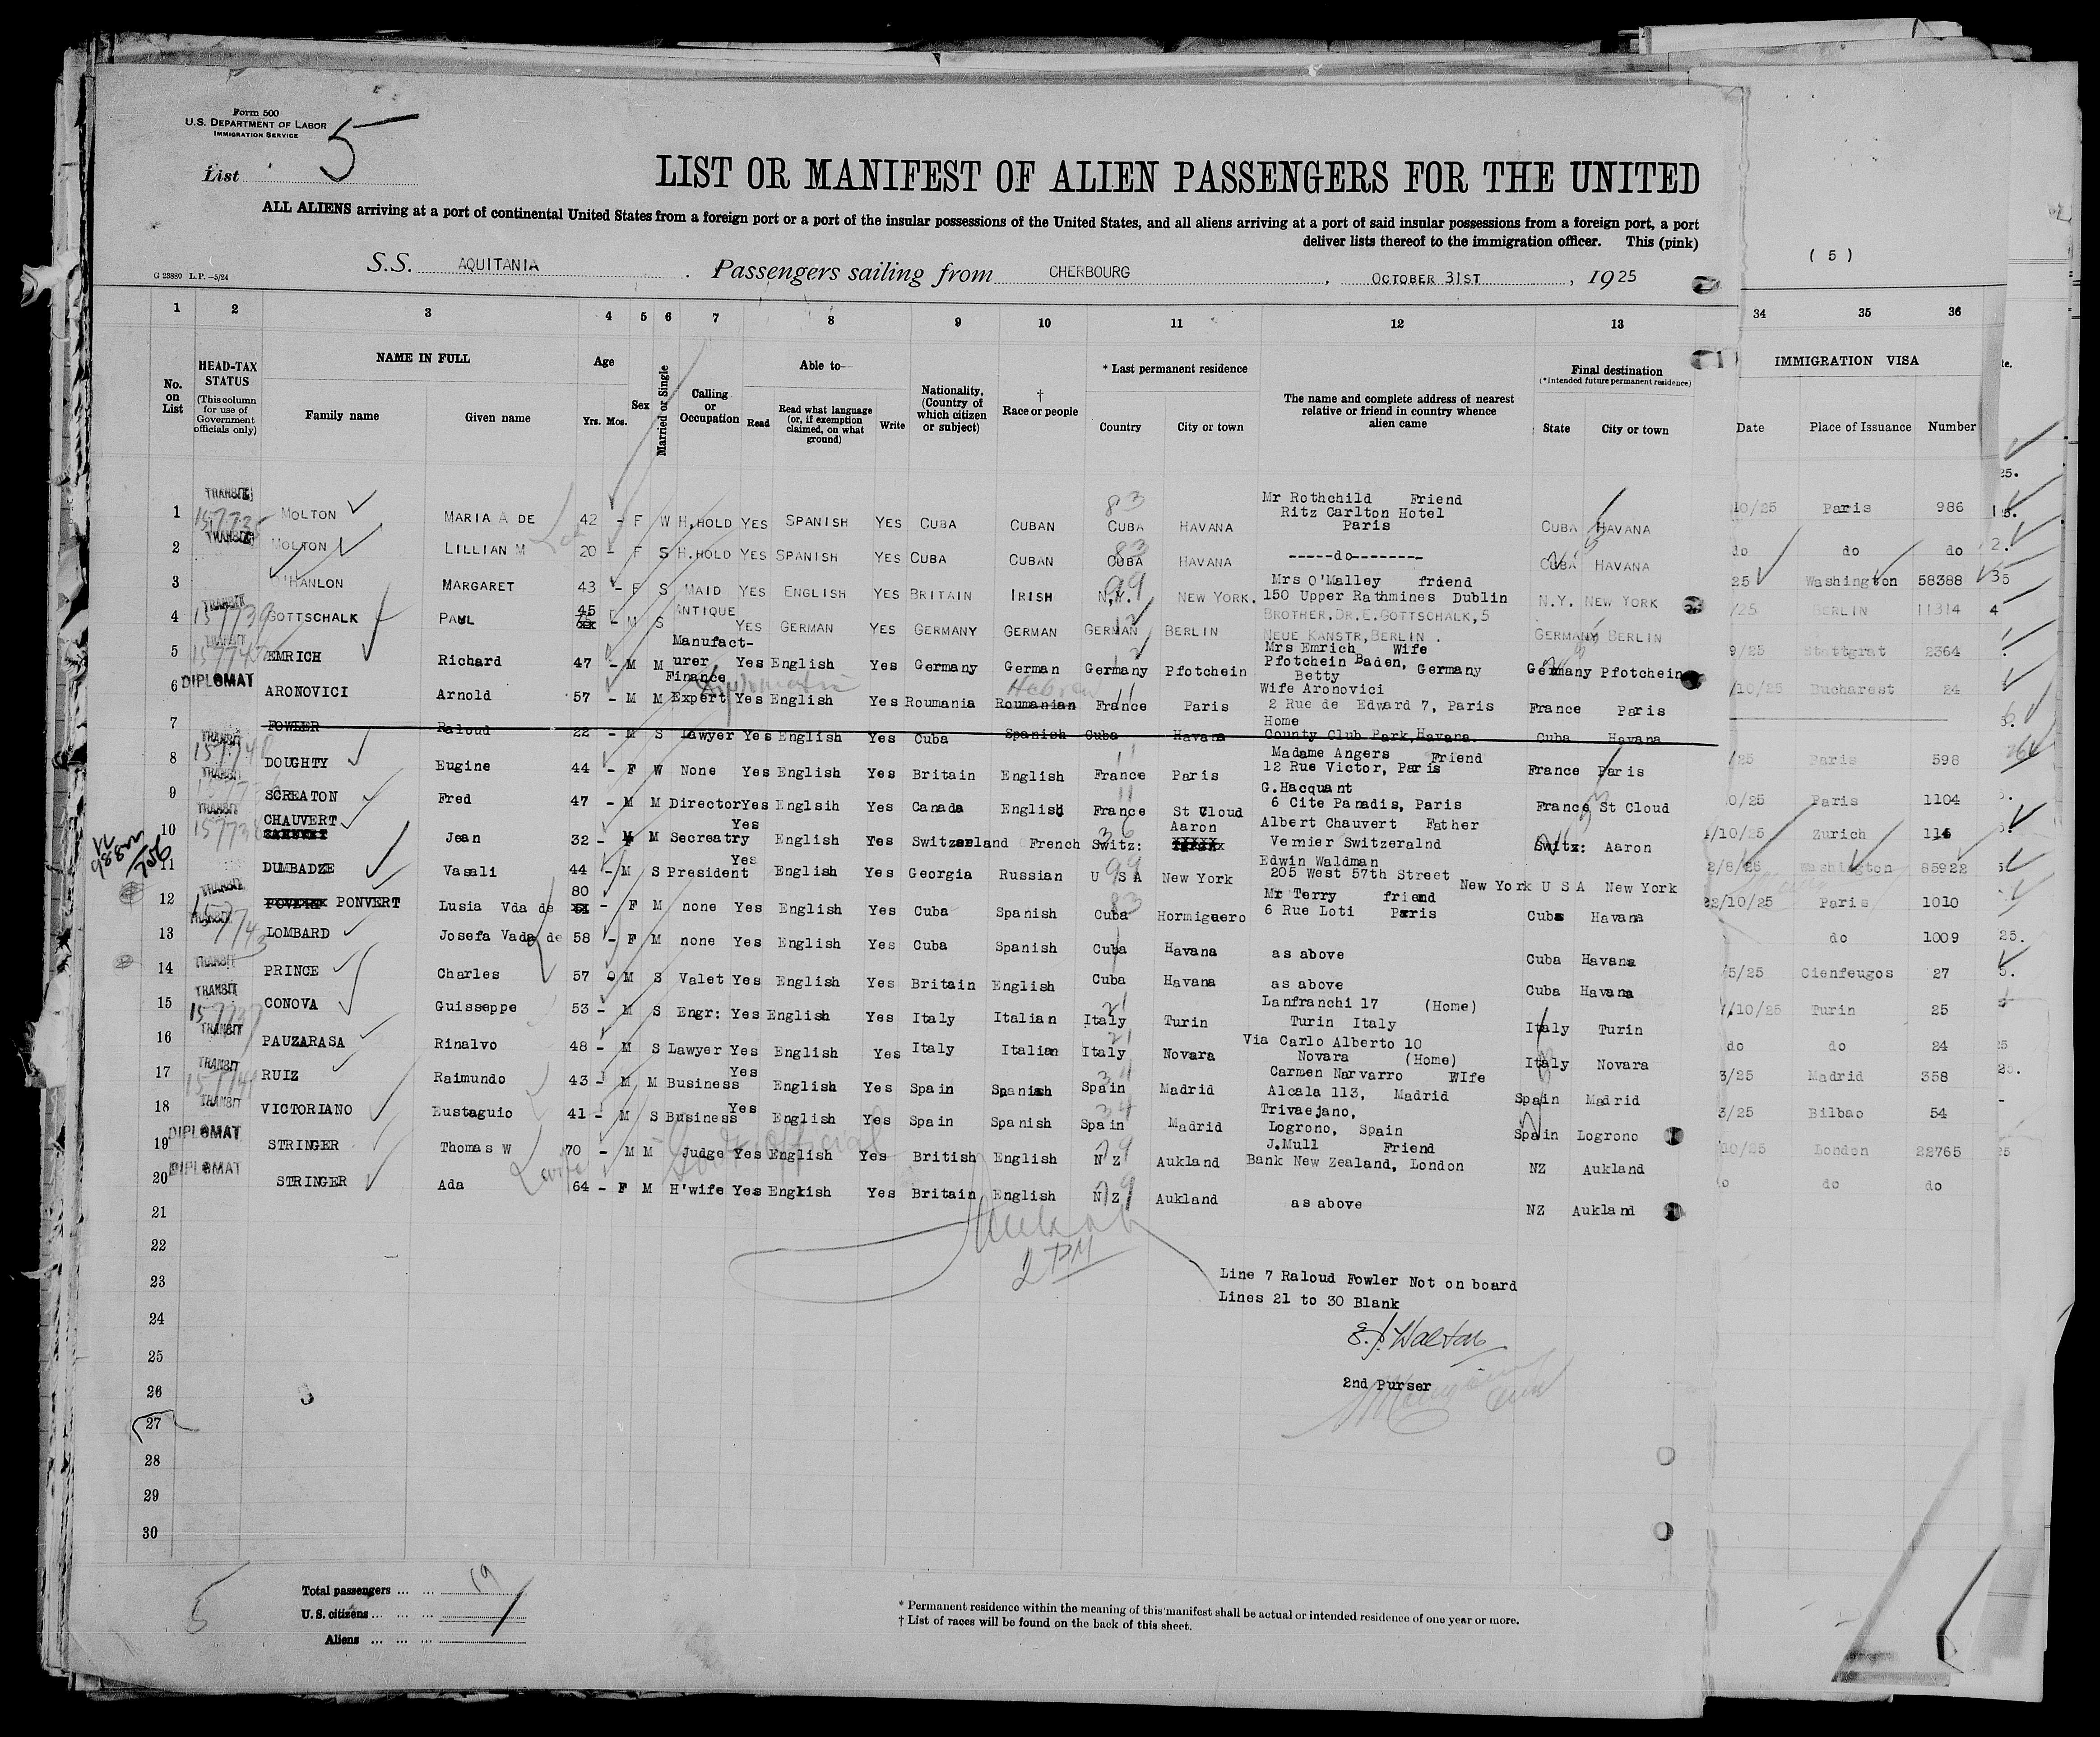 Form 500
U.S. DEPARTMENT OF LABOR
IMMIGRATION SERVICE
List 5
LIST OR MANIFEST OF ALIEN PASSENGERS FOR THE UNITED
ALL ALIENS arriving at a port of continental United States from a foreign port or a port of the insular possessions of the United States, and all aliens arriving at a port of said insular possessions from a foreign port, a port
deliver lists thereof to the immigration officer. This (pink)
( 5 )
G 23880 L.P.—5/24
S.S. AQUITANIA Passengers sailing from CHERBOURG, OCTOBER 31ST, 1925
1 2 3 4 5 6 7 8 9 10 11 12 13 34 35 36
No. on List
HEAD-TAX STATUS (This column for use of Government officials only)
NAME IN FULL Family name Given name
Age Yrs. Mos.
Sex
Married or Single
Calling or Occupation
Able to— Read Read what language (or, if exemption claimed, on what ground) Write
Nationality, (Country of which citizen or subject)
† Race or people
* Last permanent residence Country City or town
The name and complete address of nearest relative or friend in country whence alien came
Final destination (*Intended future permanent residence) State City or town
IMMIGRATION VISA Date Place of Issuance Number
1 TRANSIT MOLTON MARIA A DE 42 - F W H.HOLD YES SPANISH YES CUBA CUBAN CUBA HAVANA Mr Rothchild Friend Ritz Carlton Hotel Paris CUBA HAVANA 10/25 Paris 986
2 TRANSIT MOLTON LILLIAN M 20 - F S H.HOLD YES SPANISH YES CUBA CUBAN CUBA HAVANA -----do-------- CUBA HAVANA do do do
3 'HANLON MARGARET 43 - F S MAID YES ENGLISH YES BRITAIN IRISH N.Y. NEW YORK. Mrs O'Malley friend 150 Upper Rathmines Dublin N.Y. NEW YORK 25 Washington 58388
4 TRANSIT GOTTSCHALK PAUL 45 - M S ANTIQUE YES GERMAN YES GERMANY GERMAN GERMAN BERLIN BROTHER,DR.E.GOTTSCHALK,5 NEUE KANSTR,BERLIN . GERMANY BERLIN /25 BERLIN 11314
5 TRANSIT EMRICH Richard 47 - M M Manufact-urer Yes English Yes Germany German Germany Pfotchein Mrs Emrich Wife Pfotchein Baden, Germany Germany Pfotchein 9/25 Stattgrat 2364
6 DIPLOMAT ARONOVICI Arnold 57 - M M Finance Expert Yes English Yes Roumania Roumanian Hebrew France Paris Betty Wife Aronovici 2 Rue de Edward 7, Paris France Paris /10/25 Bucharest 24
7 FOWLER Raloud 22 - M S Lawyer Yes English Yes Cuba Spanish Cuba Havana Home County Club Park,Havana. Cuba Havana
8 TRANSIT DOUGHTY Eugine 44 - F W None Yes English Yes Britain English France Paris Madame Angers Friend 12 Rue Victor, Paris France Paris /25 Paris 598
9 TRANSIT SCREATON Fred 47 - M M Director Yes Englsih Yes Canada English France St Cloud G.Hacquant 6 Cite Panadis, Paris France St Cloud 0/25 Paris 1104
10 TRANSIT CHAUVERT Jean 32 - M M Secreatry Yes English Yes Switzerland French Switz: Aaron Albert Chauvert Father Vernier Switzeralnd Switz: Aaron /10/25 Zurich 115
11 DUMBADZE Vasali 44 - M S President Yes English Yes Georgia Russian U S A New York Edwin Waldman 205 West 57th Street New York U S A New York 2/8/25 Washington 85922
12 TRANSIT PONVERT Lusia Vda de 80 - F M none Yes English Yes Cuba Spanish Cuba Hormiguero Mr Terry friend 6 Rue Loti Paris Cuba Havana 22/10/25 Paris 1010
13 TRANSIT LOMBARD Josefa Vada de 58 - F M none Yes English Yes Cuba Spanish Cuba Havana as above Cuba Havana do 1009
14 TRANSIT PRINCE Charles 57 0 M S Valet Yes English Yes Britain English Cuba Havana as above Cuba Havana /5/25 Cienfeugos 27
15 TRANSIT CONOVA Guisseppe 53 - M S Engr: Yes English Yes Italy Italian Italy Turin Lanfranchi 17 (Home) Turin Italy Italy Turin 7/10/25 Turin 25
16 TRANSIT PAUZARASA Rinalvo 48 - M S Lawyer Yes English Yes Italy Italian Italy Novara Via Carlo Alberto 10 Novara (Home) Italy Novara do do 24
17 TRANSIT RUIZ Raimundo 43 - M M Business Yes English Yes Spain Spanish Spain Madrid Carmen Narvarro WIfe Alcala 113, Madrid Spain Madrid 3/25 Madrid 358
18 TRANSIT VICTORIANO Eustaguio 41 - M S Business Yes English Yes Spain Spanish Spain Madrid Trivaejano, Logrono, Spain Spain Logrono 3/25 Bilbao 54
19 DIPLOMAT STRINGER Thomas W 70 - M M Judge Yes English Yes British English N Z Aukland J.Mull Friend Bank New Zealand, London NZ Aukland 10/25 London 22765
20 DIPLOMAT STRINGER Ada 64 - F M H'wife Yes English Yes Britain English N Z Aukland as above NZ Aukland do do do
21
22
2 PM
23
Line 7 Raloud Fowler Not on board
Lines 21 to 30 Blank
24
E.J. Walton
25
2nd Purser
26
27
28
29
30
5
Total passengers ... ... 19
U. S. citizens ... ... ...
Aliens ... ... ...
* Permanent residence within the meaning of this manifest shall be actual or intended residence of one year or more.
† List of races will be found on the back of this sheet.